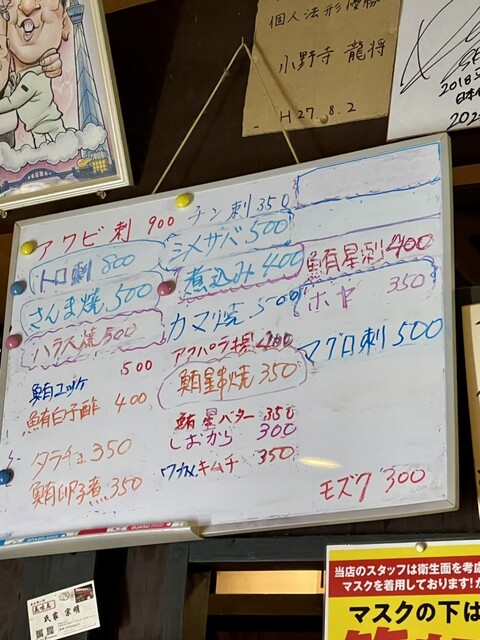 個人法形優勝
小野寺 龍将
H27.8.2
2018.5
日本
アワビ刺 900
トロ刺 800
さんま焼 500
ハラス焼 500
鮪ユッケ 500
鮪白子酢 400
タラチュ 350
鮪卵子煮 350
チン刺 350
シメサバ 500
煮込み 400
カマ焼 500
鮪串焼 350
鮪星バター 350
しおから 300
ワカメキムチ 350
鮪星刺 400
ホヤ 350
マグロ刺 500
モズク 300
武家 宗明
当店のスタッフは衛生面を考慮
マスクを着用しております!
マスクの下は